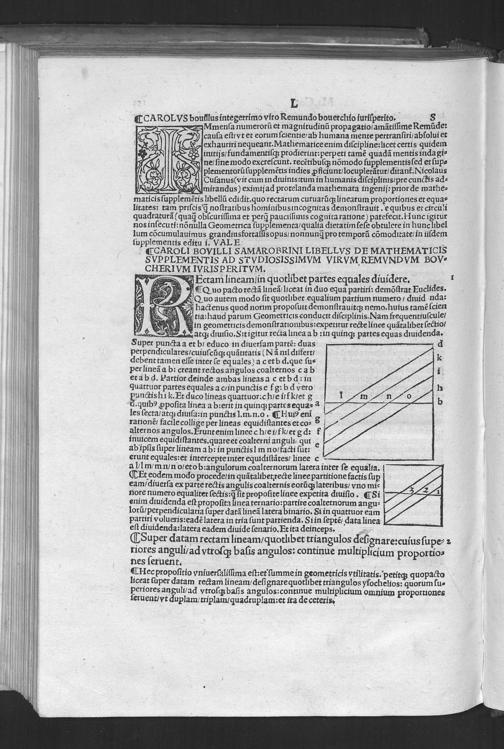 L
¶CAROLVS bouillus integerrimo viro Remundo bouerchio iurisperito. S
IMmensa numerorū et magnitudinū propagatio/amātissime Remūde:
causa est vt et eorum scientie/ab humana mente pertransiri/absolui et
exhauriri nequeant. Mathematice enim discipline: licet certis quidem
initijs/fundamentisq; prodierint: perpeti tamē quadā mentis indagi
ne/sine modo excrescunt. recētibusq; nō modo supplementis sed et sup
plementorū supplemētis indies pficiunt/locupletātur/ditant. Nicolaus
Cusanus (vir cum in diuinis: tum in humanis disciplinis: pre cunctis ad
mirandus) eximij ad protelanda mathemata ingenij: prior de mathe-
maticis supplemētis libellū edidit. quo rectarum curuarūq; linearum proportiones et equa-
litates: tam priscis q̄ nostratibus hominibus incognitas demonstrauit. e quibus et circuli
quadraturā (quāq̄ obscurissima et perq̄ paucissimis cognita ratione) patefecit. Hunc igitur
nos insecuti: nōnulla Geometrica supplementa/qualia dietatim sese obtulere in hunc libel
lum cōcumulauimus grandius forta ssis opus/nonnunq̄ pro temporū cōmoditate: in iisdem
supplementis edituri. VALE
¶CAROLI BOVILLI SAMAROBRINI LIBELLVS DE MATHEMATICIS
SVPPLEMENTIS AD STVDIOSISSIMVM VIRVM REMVNDVM BOV-
CHERIVM IVRISPERITVM.
REctam lineam/in quotlibet partes equales diuidere. 1
¶Quo pacto rectā lineā/liceat in duo equa partiri: demōstrat Euclides.
Quo autem modo sit quotlibet equalium partium numero/diuidenda:
hactenus quod norim proposuit demonstrauitq; nemo. huius tamē scien
tia: haud parum Geometris conducit disciplinis. Nam frequenter
in geometricis demonstrationibus: expetitur recte linee quātalibet sectio/
atq; diuisio. Sit igitur recta linea a b: in quinq; partes equas diuidenda.
Super puncta a et b: educo in diuersam partē: duas
perpendiculares/cuiuscūq; quātitatis (Nā nil differt/
debent tamen esse inter se equales) a c et b d. que su-
per lineā a b: creant rectos angulos coalternos c a b
et a b d. Partior deinde ambas lineas a c et b d: in
quattuor partes equales a c/in punctis e f g: b d vero
punctis h i k. Et duco lineas quattuor: c h/e i/f k/et g
d. quib⁹ pposita linea a b: erit in quinq; partes equa-
les secta/atq; diuisa: in punctis l.m.n.o. ¶Hui⁹ enī
rationē: facile colliges per lineas equidistantes et co-
alternos angulos. Erunt enim linee c h/e i/f k/et g d:
inuicem equidistantes. quare et coalterni anguli qui
ab ipsis super lineam a b: in punctis l m n o/facti sūt:
erunt equales: et intercepte inter equidistātes/linee
a l/l m/m n/n o/et o b: angulorum coalternorum latera inter se equalia.
¶Et eodem modo procede/in quātalibet recte linee partitione factis sup
eam/diuersa ex parte rectis angulis coalternis eorūq; lateribus/vno mi-
nore numero equaliter sectis: q̄ sit proposite linee expetita diuisio. ¶Si
enim diuidenda est proposita linea ternario: partire coalternorum angu-
lorū/perpendicularia super datā lineā latera binario. Si in quattuor eam
partiri volueris: eadē latera in tria sunt partienda. Si in septē/ data linea
est diuidenda: latera eadem diuide senario. Et ita deinceps.
¶Super datam rectam lineam/quotlibet triangulos designare: cuius supe- 2
riores anguli/ad vtrosq; basis angulos: continue multiplicium proportio-
nes seruent.
¶Hec propositio vniuersalissima est: et summe in geometricis vtilitatis. petitq; quo pacto
liceat super datam rectam lineam/designare quotlibet triangulos ysochelios: quorum su-
periores anguli/ad vtrosq; basis angulos: continue multiplicium omnium proportiones
seruent/vt duplam/triplam/quadruplam: et ita de ceteris.
d
k
i
h
b
l m n o
a
g
f
e
c
1 2 3